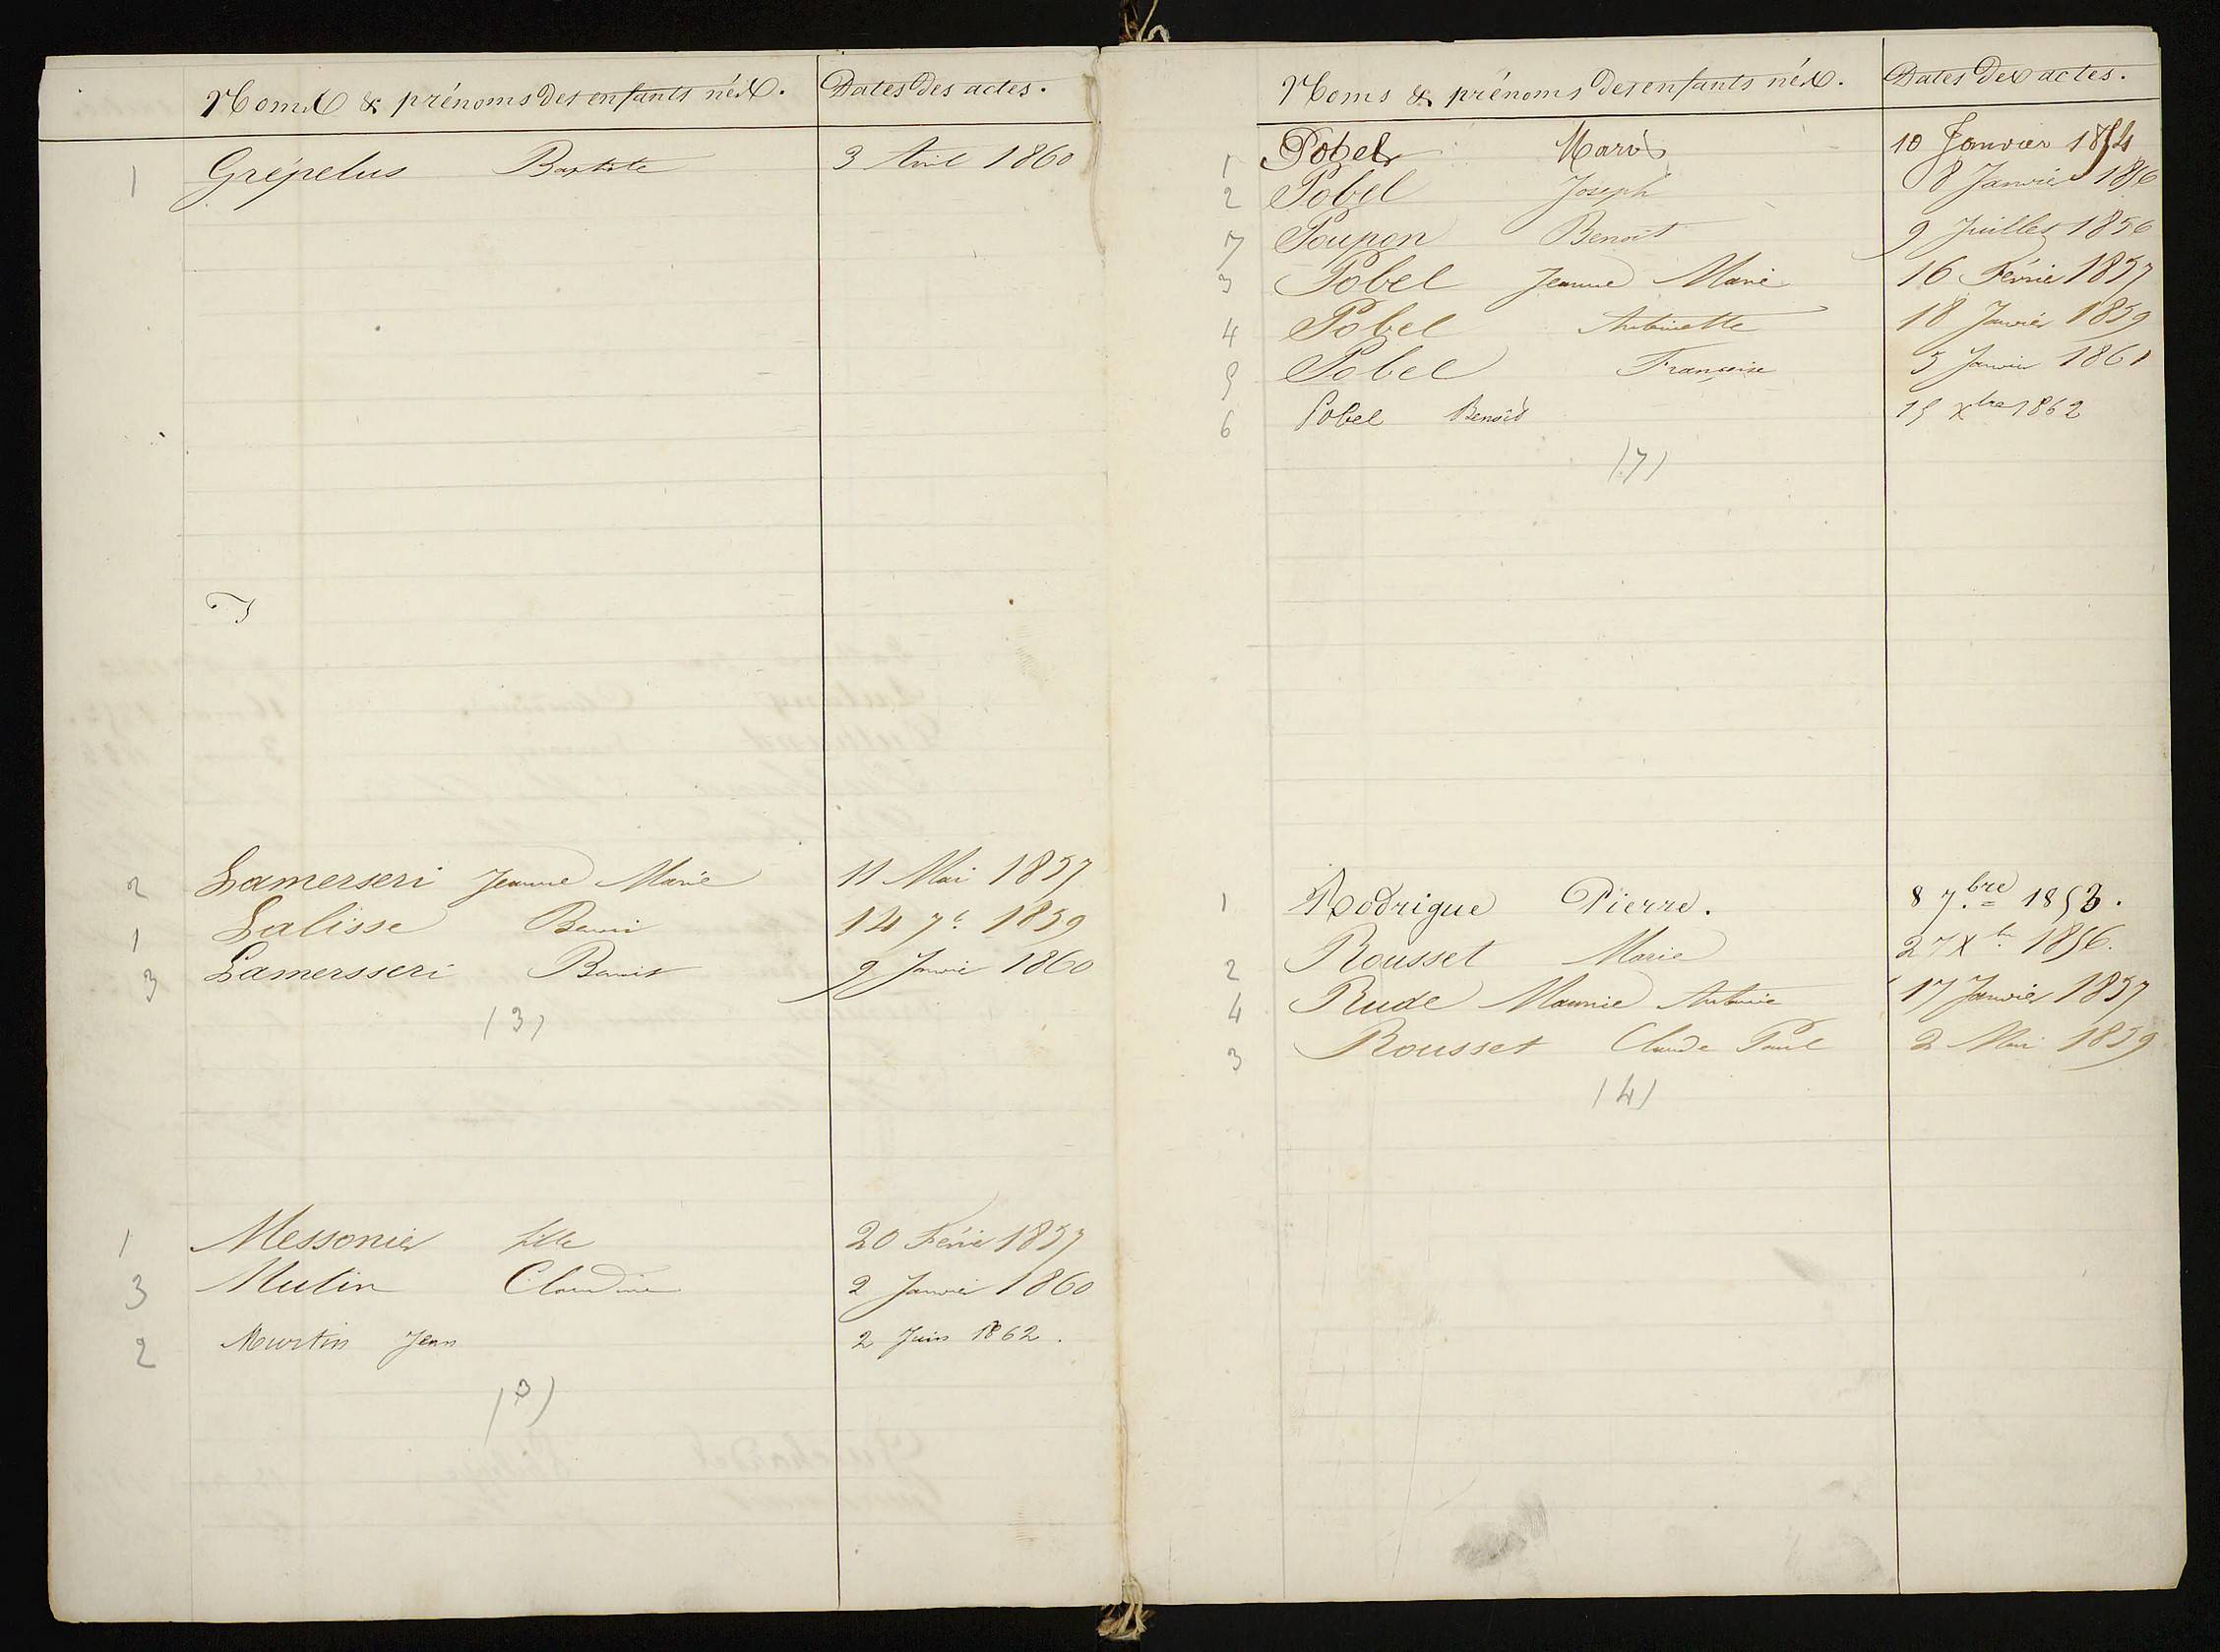 Noms & prénoms des enfants nés. Dates des actes.
1 Grépelus Baptiste 3 Avril 1860
2 Lamerseri Jeanne Marie 11 Mai 1857
1 Lalisse 14 7e 1859
3 Lamersseri Benoit 9 Janvier 1860
(3)
1 Messonier fille 20 Février 1857
3 Mulin Claudine 2 Janvier 1860
2 Martin Jean 2 Juin 1862.
(3)
Noms & prénoms des enfants nés. Dates des actes.
1 Pobel Marie 10 Janvier 1854
2 Pobel Joseph 8 Janvier 1856
7 Poupon Benoit 9 Juillet 1856
3 Pobel Jeanne Marie 16 Février 1857
4 Pobel Antoinette 18 Janvier 1859
5 Pobel Françoise 5 Janvier 1861
6 Pobel Benoît 15 Xbre 1862
(7)
1 Rodrigue Pierre. 8 7.bre 1853.
2 Rousset Marie 27 Xbre 1856.
4 Rude Antoine 17 Janvier 1857
3 Rousset Claude Paul 2 Mai 1859
(4)